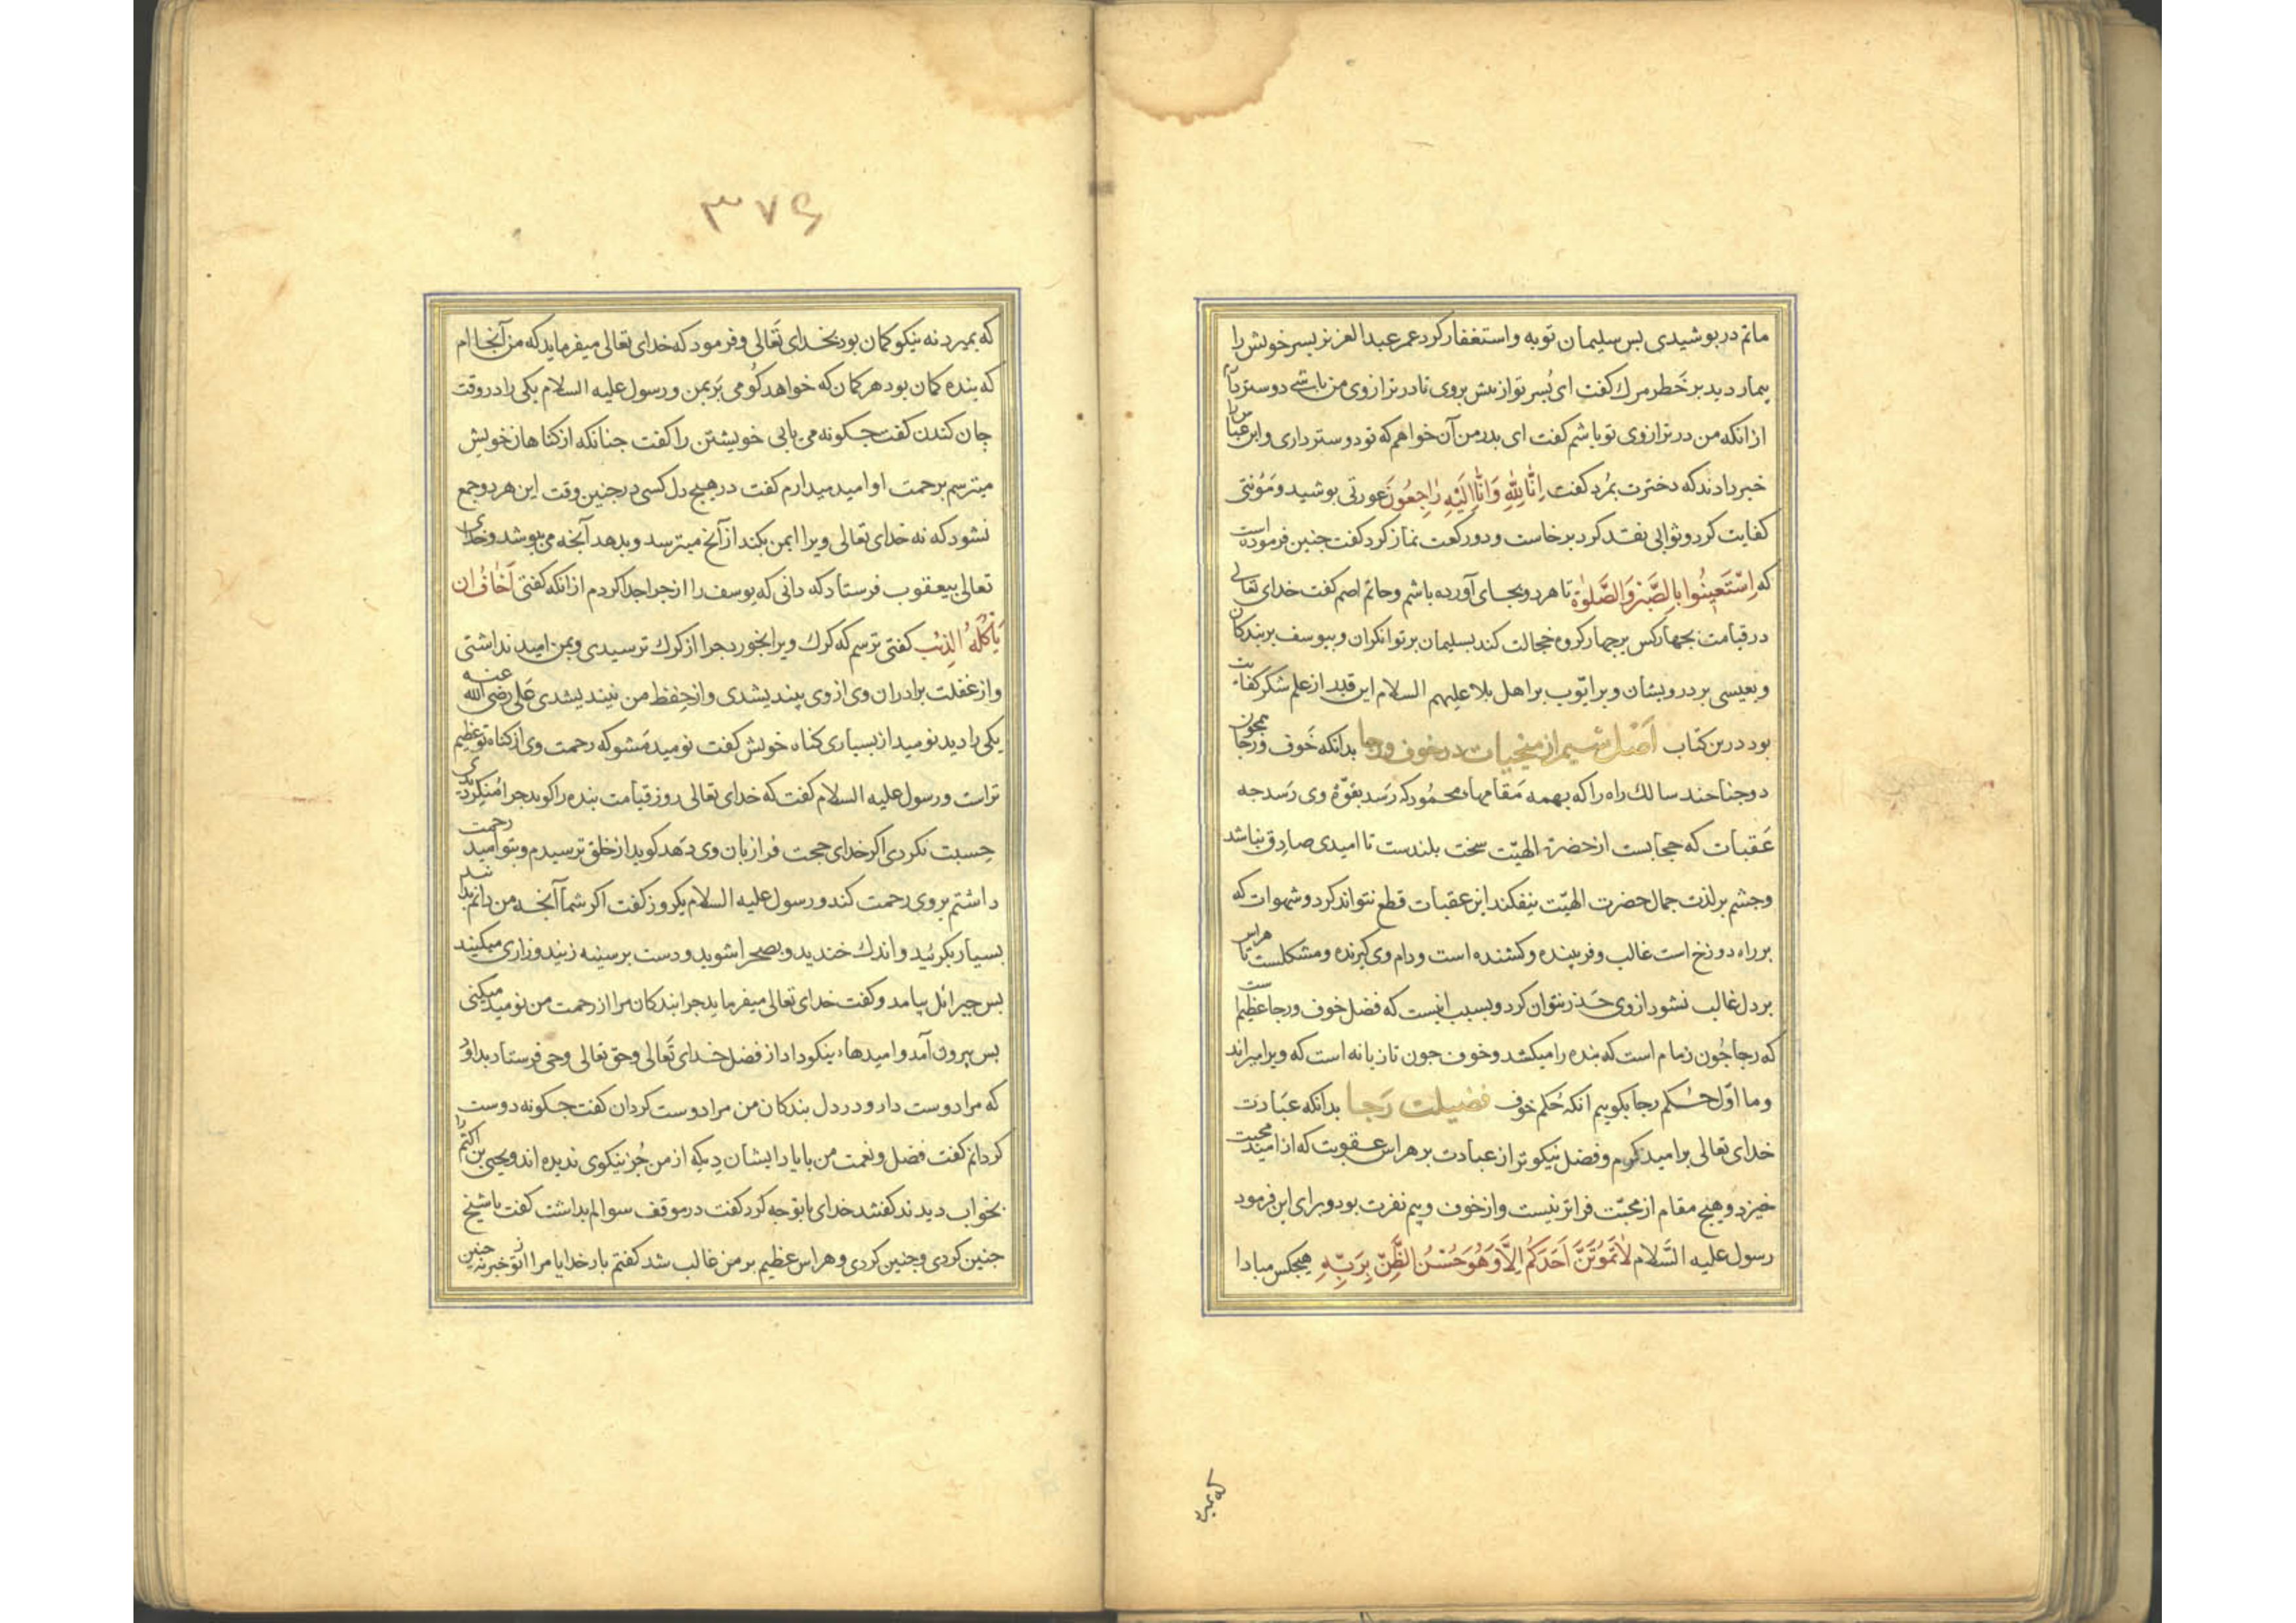 ماتم در بوشیدی بس سلیمان توبه و استغفار کرد عمر عبد العزیز بسر خویش را
بیمار دید بر خَطر مرك کفت ای بُسر تو از بیش بروی تا در ترازوی من باشی دوستر دارم
از انکه من در ترازوی تو باشم کفت ای بدر من آن خواهم که تو دوستر داری و ابن عباس را
خبر دادند که دخترت بمُرد کفت اِنّا لِلّهِ وَاِنّا اِلَیْهِ رَاجِعُونَ عورتی بوشید و مَؤنتی
کفایت کرد و ثوابی نقد کرد برخاست و دو رکعت نماز کرد کفت جنین فرموده است
که اِسْتَعِینُوا بِالصَّبْرِ وَالصَّلوٰةِ تا هر دو بجای آورده باشم و حاتم اصم کفت خدای تعالی
در قیامت بجهار کس بر جهار کروه حجالت کند بسلیمان بر توانکران و بیوسف بر بندکان
و بعیسی بر درویشان و بر ایّوب بر اهل بلا علیهم السلام این قدر از علم شکر کفایت
بود درین کتاب اَصْل سیم از منجیات در خوف و رجا بدانکه خَوف و رَجا همجون
دو جناحند سالك راه را که بهمه مَقامهاء محمُود که رَسَد بقوّة وی رَسد جه
عَقبات که حجابست از حضرت الهیّت سخت بلندست تا امیدی صادِق نباشد
و جشم بر لذت جمال حضرت الهیّت نیفکند این عقبات قطع نتواند کرد و شهوات که
بر راه دوزخ است غالب و فریبنده و کشنده است و دام وی کیرنده و مشکلست تا هراس
بر دل غالب نشود از وی حَذر نتوان کرد و بسبب اینست که فضل خوف و رجا عظیم است
که رجا جُون زمام است که بنده را میکشد و خوف جون تازیانه است که ویرا میراند
و ما اوّل حُکم رجا بکوییم انکه حُکم خوف فضیلت رَجا بدانکه عبَادت
خدای تعالی بر امید کرم و فضل نیکوتر از عبادت بر هراس عقوبت که از امید محبت
خیزد و هیج مقام از محبّت فراتر نیست و از خوف و بیم نفرت بود و برای این فرمود
رسول علیه السَّلام لٰا یَمُوتَنَّ اَحَدَکُمْ اِلَّا وَهُوَ حُسْنُ الظَّنِّ بِرَبِّهِ هیجکس مبادا
که بمیرد
۳۷۶
که بمیرد نه نیکو کمان بود بخدای تَعالی و فرمود که خدای تعالی میفرماید که من آنجا ام
که بنده کمان بود هر کمان که خواهد کو می بَر بمن و رسول علیه السلام یکی را در وقت
جان کندن کفت جکونه می یابی خویشتن را کفت جنانکه از کناهان خویش
میترسم بر حمت او امید میدارم کفت در هیج دل کسی در جنین وقت این هر دو جمع
نشود که نه خدای تعالی ویرا ایمن بکند از آنج میترسد و بدهد آنجه می بیوشد و خدای
تعالی بیعقوب فرستاد که دانی که یوسف را از جرا جدا کردم از انکه کفتی اَخٰافُ ان
یَأکُلَهُ الذِئب کفتی ترسم که کرك ویرا بخورد جرا از کرك ترسیدی و بمن امید نداشتی
و از غفلت برادران وی از وی بیندیشدی و از حِفظ من نیندیشدی عَلی رضی الله عنه
یکی را دید نومید از بسیاری کناه خویش کفت نومید مَشو که رحمت وی از کناه تو عظیم
تر است و رسول علیه السلام کفت که خدای تعالی روز قیامت بنده را کوید جرا مُنکر دیدی
حِسبت نکردی اکر خدای حجت فرا زبان وی دَهد کوید از خلق ترسیدم و بتو امید رحمت
داشتم بر وی رحمت کند و رسول علیه السلام یکروز کفت اکر شما آنجه من دانم بدانید
بسیار بکریید و اندك خندید و بصحرا شوید و دست بر سینه زنید و زاری میکنید
بس جبرائل بیامد و کفت خدای تعالی میفرماید جرا بندکان مرا از رحمت من نومید میکنی
بس بیرون آمد و امیدهاء نیکو داد از فضل خدای تَعالی و حق تعالی وحی فرستاد بداوُد
که مرا دوست دار و در دل بندکان من مرا دوست کردان کفت جکونه دوست
کردانم کفت فضل و نعمت من با یاد ایشان دِه که از من جُز نیکوی ندیده اند و یحیی بن اکثم را
بخواب دیدند کفتند خدای با تو جه کرد کفت در موقف سوالم بداشت کفت یا شیخ
جنین کردی و جنین کردی و هراس عظیم بر من غالب شد کفتم بار خدایا مرا از تو خبر نه جنین